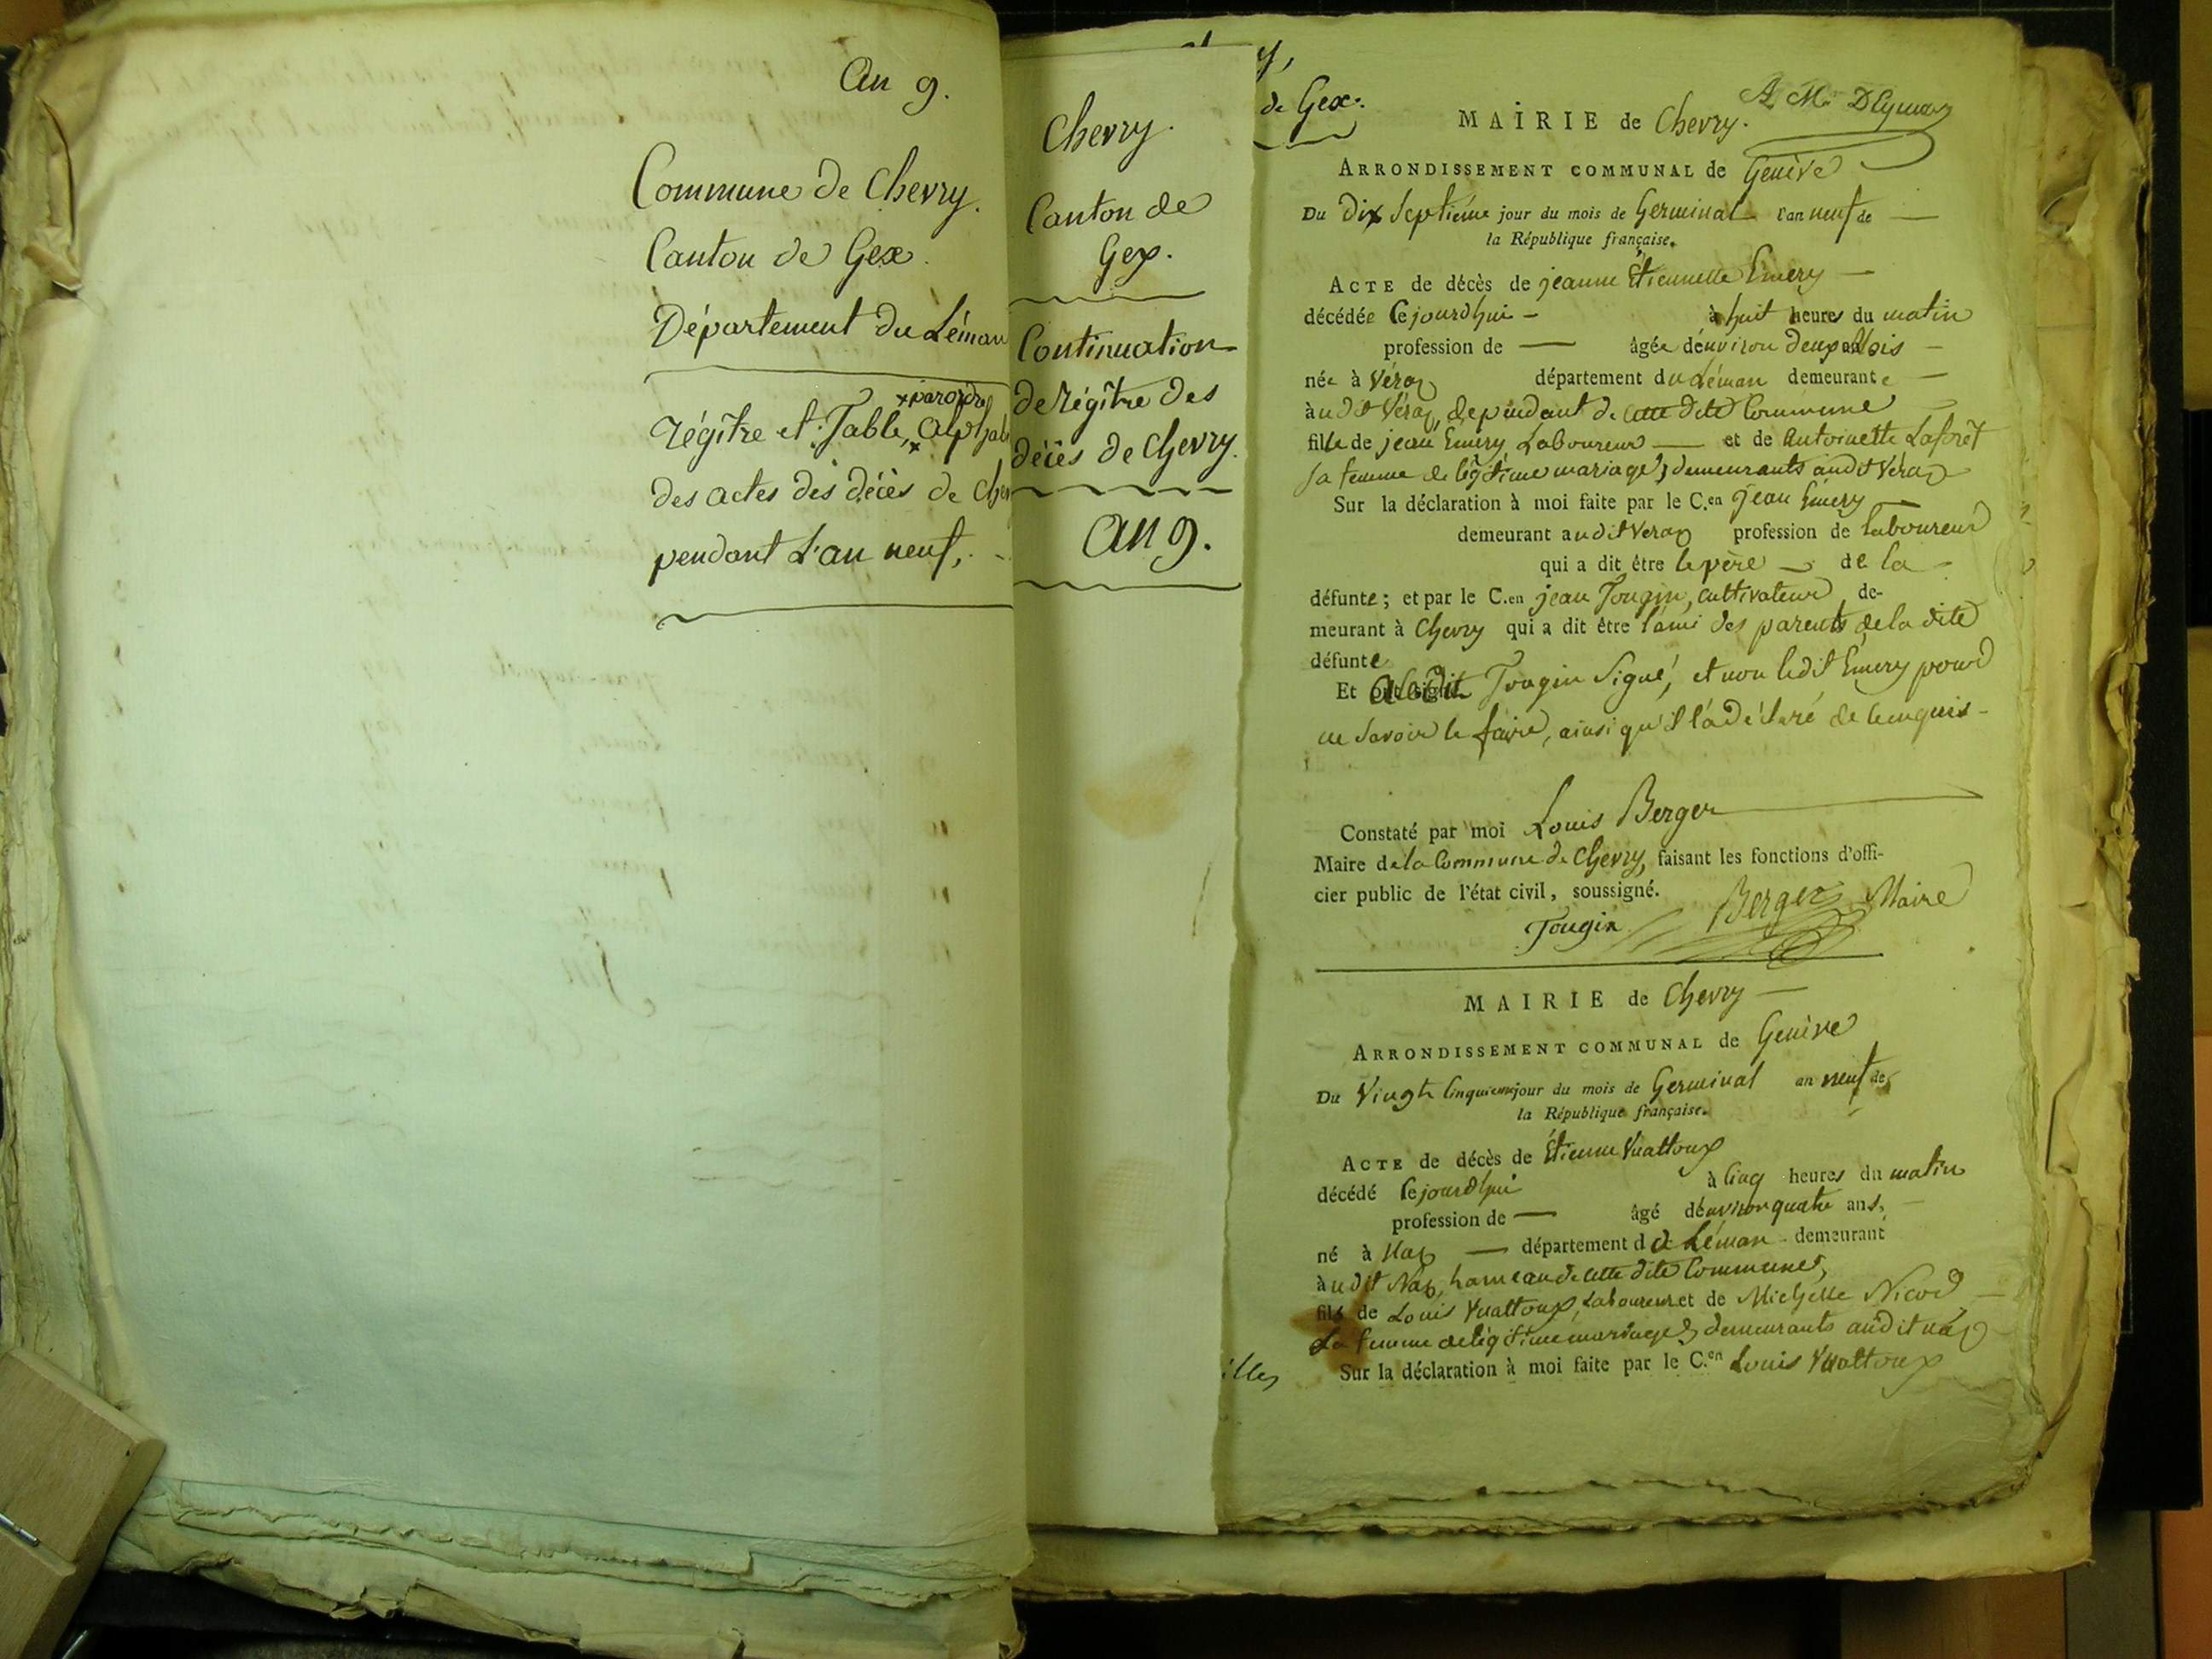 An 9.
Commune de Chevry.
Canton de Gex.
Département du Léman
× par ordre
régître et Table, × Alphab
des actes des décès de Chev
pendant l'an neuf,
Chevry.
Canton de
Gex.
Continuation
de régître des
décès de Chevry.
An 9.
de Gex.
A Mr
MAIRIE de Chevry.
ARRONDISSEMENT COMMUNAL de Genève
Du Dix Septième jour du mois de Germinal l'an neuf de
la République française.
ACTE de décès de jeanne Étiennette Émery
décédée cejourdhui à huit heures du matin
profession de — âgée d'environ deux Mois
née à Véraz département du Léman demeurante
audit Véraz, dépendant de cette dite Commune
fille de jean Émery Laboureur et de Antoinette Laforêt
sa femme de légitime mariage, demeurants audit Véraz
Sur la déclaration à moi faite par le C.en jean Émery
demeurant audit Veraz profession de laboureur
qui a dit être le père de la
défunte; et par le C.en jean Tougin, cultivateur, de-
meurant à Chevry qui a dit être l'ami des parents de la dite
défunte
Et a ledit Tougin Signé, et non ledit Émery pour
ne savoir le faire, ainsi qu'il l'a déclaré de ce requis
Constaté par moi Louis Berger
Maire de la Commune de Chevry, faisant les fonctions d'offi-
cier public de l'état civil, soussigné.
Tougin Berger Maire
MAIRIE de Chevry
ARRONDISSEMENT COMMUNAL de Genève
Du Vingt Cinquieme jour du mois de Germinal an neuf de
la République française.
ACTE de décès de Étienne Vuattoux
décédé cejourdhui à cinq heures du matin
profession de — âgé d'environ quatre ans,
né à Naz — département du Léman demeurant
audit Naz, hameau de cette dite Commune,
fils de Louis Vuattoux, Laboureur et de Michelle Nicod
sa femme de légitime mariage, demeurants audit naz
Sur la déclaration à moi faite par le C.en Louis Vuattoux